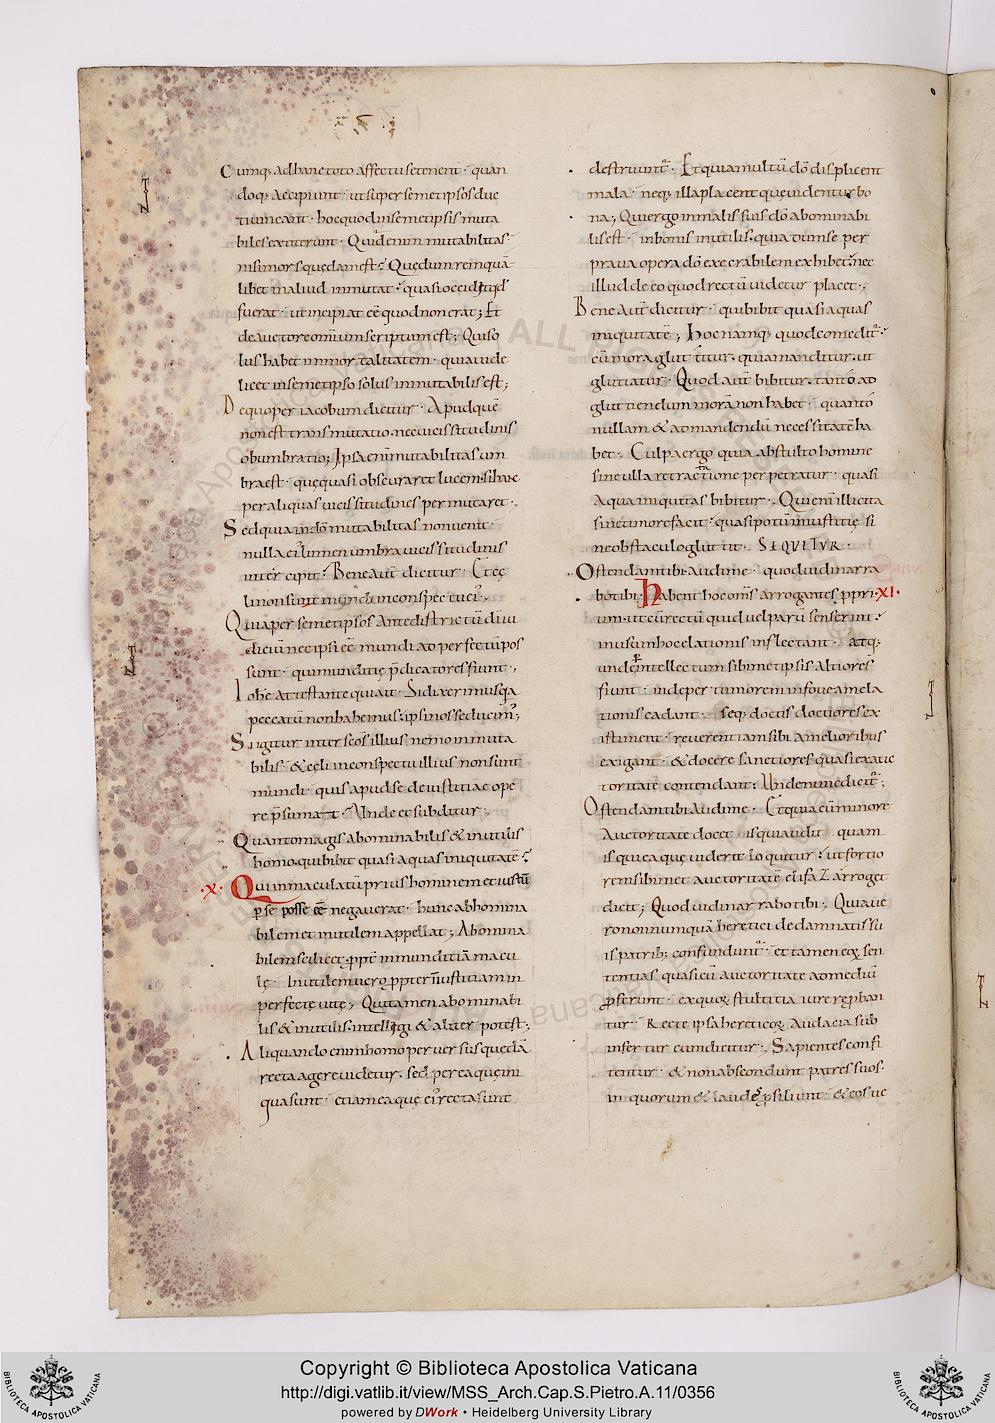 Cumq; ad hanc toto affectu se tenent· quan
doq; accipiunt· ut super semetipsos due
ti unicant· hoc quod in semetipsis muta
biles extiterunt· Quid enim mutabilitas
nisi mors quędam est? Quę dum rem quā
libet in aliud inmutat· quasi occidit qđ
fuerat· ut incipiat eē quod non erat; Et
de auctore omnium scriptum est; Qui so
lus habet inmortalitatem· quia uide
licet in semetipso solus inmutabilis est;
De quo per iacobum dicitur· Apud quē
non est transmutatio· nec uicissitudinis
obumbratio; Ipsa enī mutabilitas um
bra est· quę quasi obscuraret lucem· si hanc
per aliquas uicissitudines permutaret·
Sed quia in dm̄ mutabilitas non uenit·
nulla ei' lumen umbra uicissitudinis
intercipit? Bene aut̄ dicitur· Et cęl
li non sunt mundi in conspectu ei';
Quia per semetipsos ante districtū diui
dicium nec ipsi eē mundi ad perfectū pos
sunt· qui munditię p̄dicatores fiunt·
Iohe attestante qui ait· Si dixerimus qa
peccatū non habemus· ipsi nos seducim';
Si igitur inter scos illius nemo inmuta
bilis· & cęli in conspectu illius non sunt
mundi· quis apud se de iustitiae ope
re p̄sumat? Unde et subditur·
Quanto magis abominabilis & inutilis
homo· qui bibit quasi aquas iniquitatē?
·X· Qui inmaculatū prius hominem et iustū
p se posse eē negauerat· hunc abhomina
bilem et inutilem appellat; Abomina
bilem scilicet ppt inmunditiā macu
lę· Inutilem uero ppter iniustitiam in
perfectę uitę; Qui tamen abominabi
lis & inutilis intellegi & aliter potest;
Aliquando enim homo peruersus quędā
recta agere uidetur· sed per ea quę ini
qua sunt· etiam ea quę ei' recta sunt
destruunt'· Et quia multū dō displicent
mala· neq; illa placent quę uidentur bo
na; Qui ergo in malis suis dō abominabi
lis est· in bonis inutilis· quia dum se per
praua opera dō execrabilem exhibet· nec
illud de eo quod rectū uidetur placet·
Bene aut̄ dicitur· qui bibit quasi aquas
iniquitatē; Hoc namq; quod comedit'·
cū mora gluttitur· quia manditur· ut
gluttiatur· Quod aut̄ bibitur· tanto ad
gluttiendum moram non habet· quanto
nullam & ad mandendū necessitatē ha
bet· Culpa ergo quia ab stulto homine
sine ulla retractatione perpetratur· quasi
aqua iniquitas bibitur· Qui enī illicita
sine timore facit· quasi potū iniustitię si
ne obstaculo gluttit· SEQUITUR·
Ostendam tibi· audi me· quod uidi narra
bo tibi· Habent hoc om̄s arrogantes ppri ·XI·
um· ut cū rectū quid uel parū senserint·
in usum hoc elationis inflectant· atq;
unde p intellectum sibimetipsis altiores
fiunt· inde per tumorem in foueam ela
tionis cadant· seq; doctis doctiores ex
istiment· reuerentiam sibi a melioribus
exigant· & docere sanctiores quasi ex auc
toritate contendant· Unde nunc dicit'·
Ostendam tibi audi me· Et quia cū minore
auctoritate docet is qui audit· quam
is qui ea quę uiderit loquitur· ut fortio
rem sibimet auctoritatē elifaz arroget
dicit; Quod uidi narrabo tibi· Quia ue
ro nonnumquā heretici de damnatis su
is patrib; confundunt'· et tamen eoꝝ sen
tentias quasi cū auctoritate ad mediū
pferunt· ex quoꝝ stultitia iure reproban
tur· Recte ipsa hereticoꝝ audacia sub
infertur cum dicitur· Sapientes confi
tentur· & non abscondunt patres suos·
in quorum & laudes psiliunt· & eos ue
Copyright © Biblioteca Apostolica Vaticana
http://digi.vatlib.it/view/MSS_Arch.Cap.S.Pietro.A.11/0356
powered by DWork • Heidelberg University Library
BIBLIOTECA APOSTOLICA VATICANA
BIBLIOTECA APOSTOLICA VATICANA